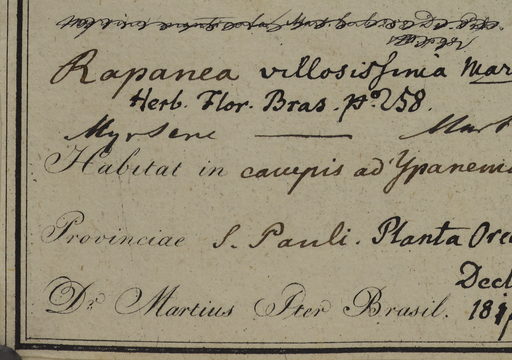 Rapanea villosissima Mar
Herb. Flor. Bras. p. 258.
Myrsene — Mart
Habitat in campis ad Ypanem
Provinciae S. Pauli. Planta
Dr. Martius Iter Brasil. 18